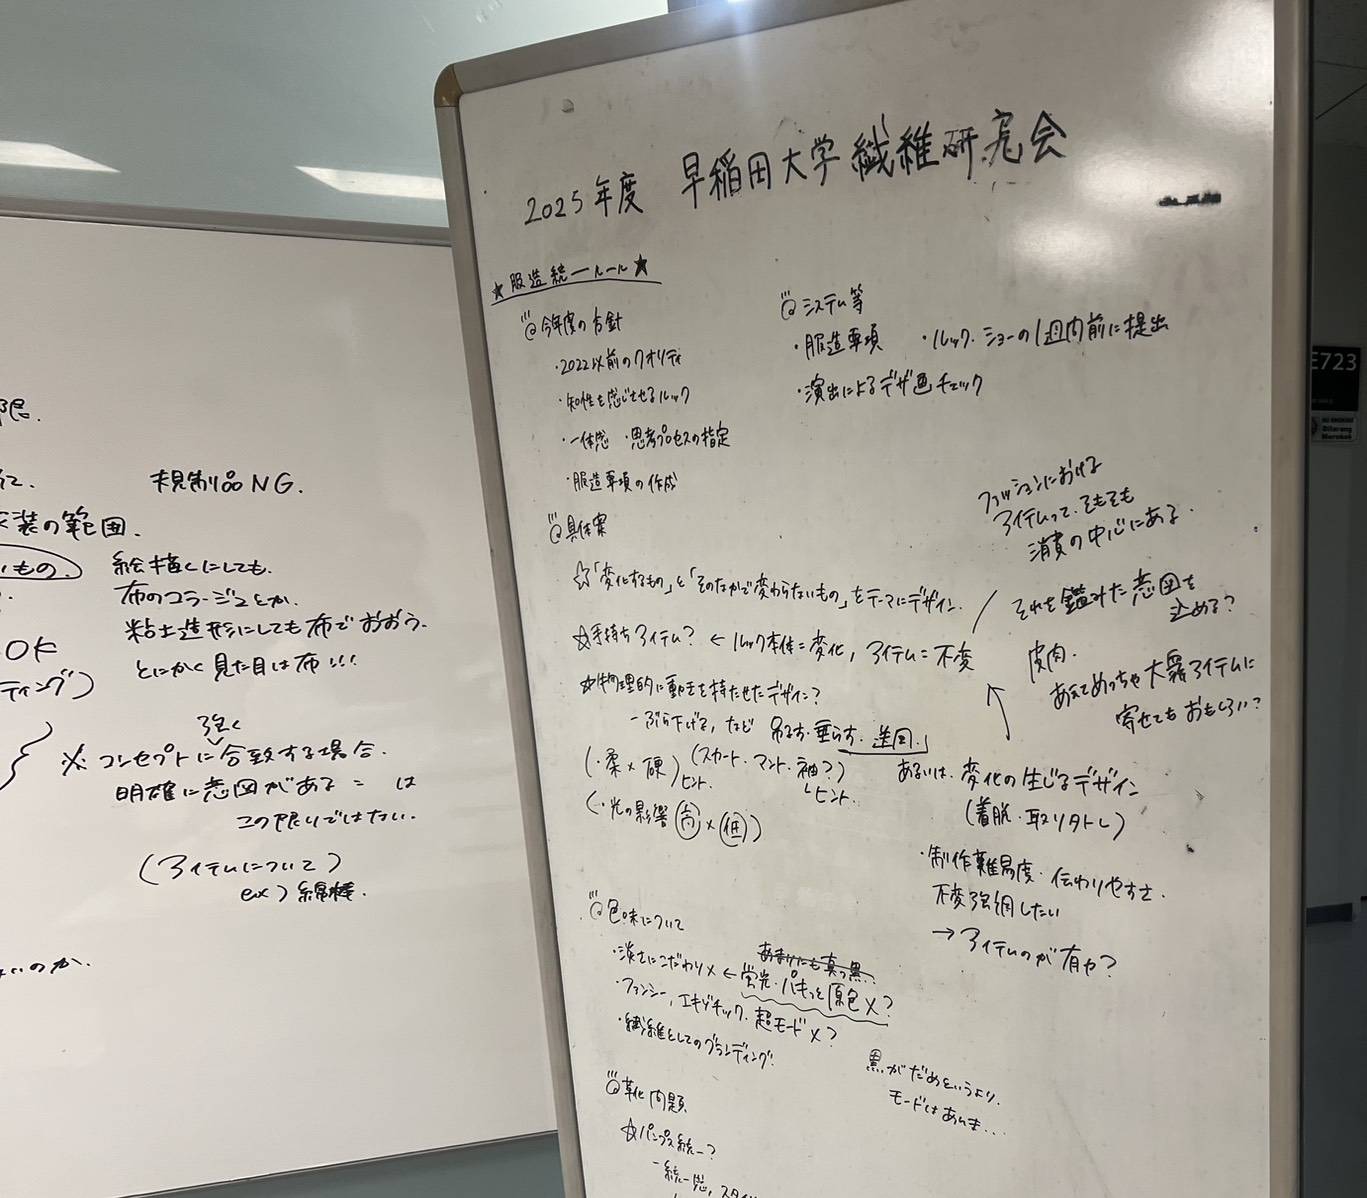 2025年度 早稲田大学繊維研究会
★服造統一ルール★
@今年度の方針
・2022以前のクオリティ
・知性を感じさせるルック
・一体感 ・思考プロセスの指定
・服造要項の作成
@システム等
・服造要項 ・ルック.ショーの1週間前に提出
・演出によるデザ画チェック
@具体案
☆「変化するもの」と「そのなかで変わらないもの」をテーマにデザイン.
☆手持ちアイテム? ← ルック本体=変化, アイテム=不変
☆物理的に動きを持たせたデザイン?
－ぶら下げる, など 吊るす・垂らす.
(・柔×硬)ヒント. (スカート.マント.袖?)
ヒント.
(・光の影響 高×低)
ファッションにおける
アイテムって、そもそも
消費の中心にある.
それを鑑みた意図を
込める?
皮肉.
あえてめっちゃ大衆アイテムに
寄せてもおもしろい?
あるいは. 変化の生じるデザイン
(着脱・取り外し)
・制作難易度・伝わりやすさ.
不変強調したい
→アイテムのが有力?
@色味について
あまりにも真っ黒
・淡さにこだわり× ← 蛍光・パキっと原色×?
・ファンシー, エキゾチック. 超モード×?
・繊維としてのブランディング
黒がだめというより.
モードはあんま...
@靴問題
☆パンプス統一?
－統一感,
限.
規制品NG.
衣装の範囲.
いもの.
絵描くにしても.
布のコラージュとか.
粘土造形にしても布でおおう.
OK
ティング)
とにかく見た目は布!!!
強く
※コンセプトに合致する場合.
明確に意図がある＝ は
この限りではない.
(アイテムについて)
ex) 綿棒.
いのか.
E723